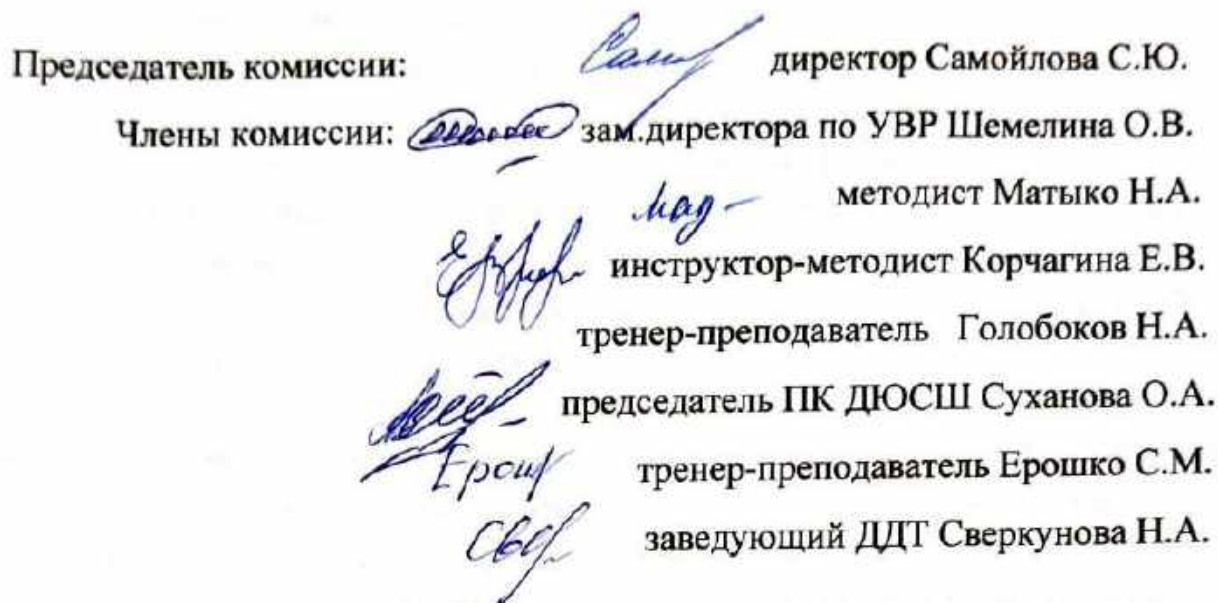 Председатель комиссии: директор Самойлова С.Ю.
Члены комиссии: зам.директора по УВР Шемелина О.В.
методист Матыко Н.А.
инструктор-методист Корчагина Е.В.
тренер-преподаватель Голобоков Н.А.
председатель ПК ДЮСШ Суханова О.А.
тренер-преподаватель Ерошко С.М.
заведующий ДДТ Сверкунова Н.А.